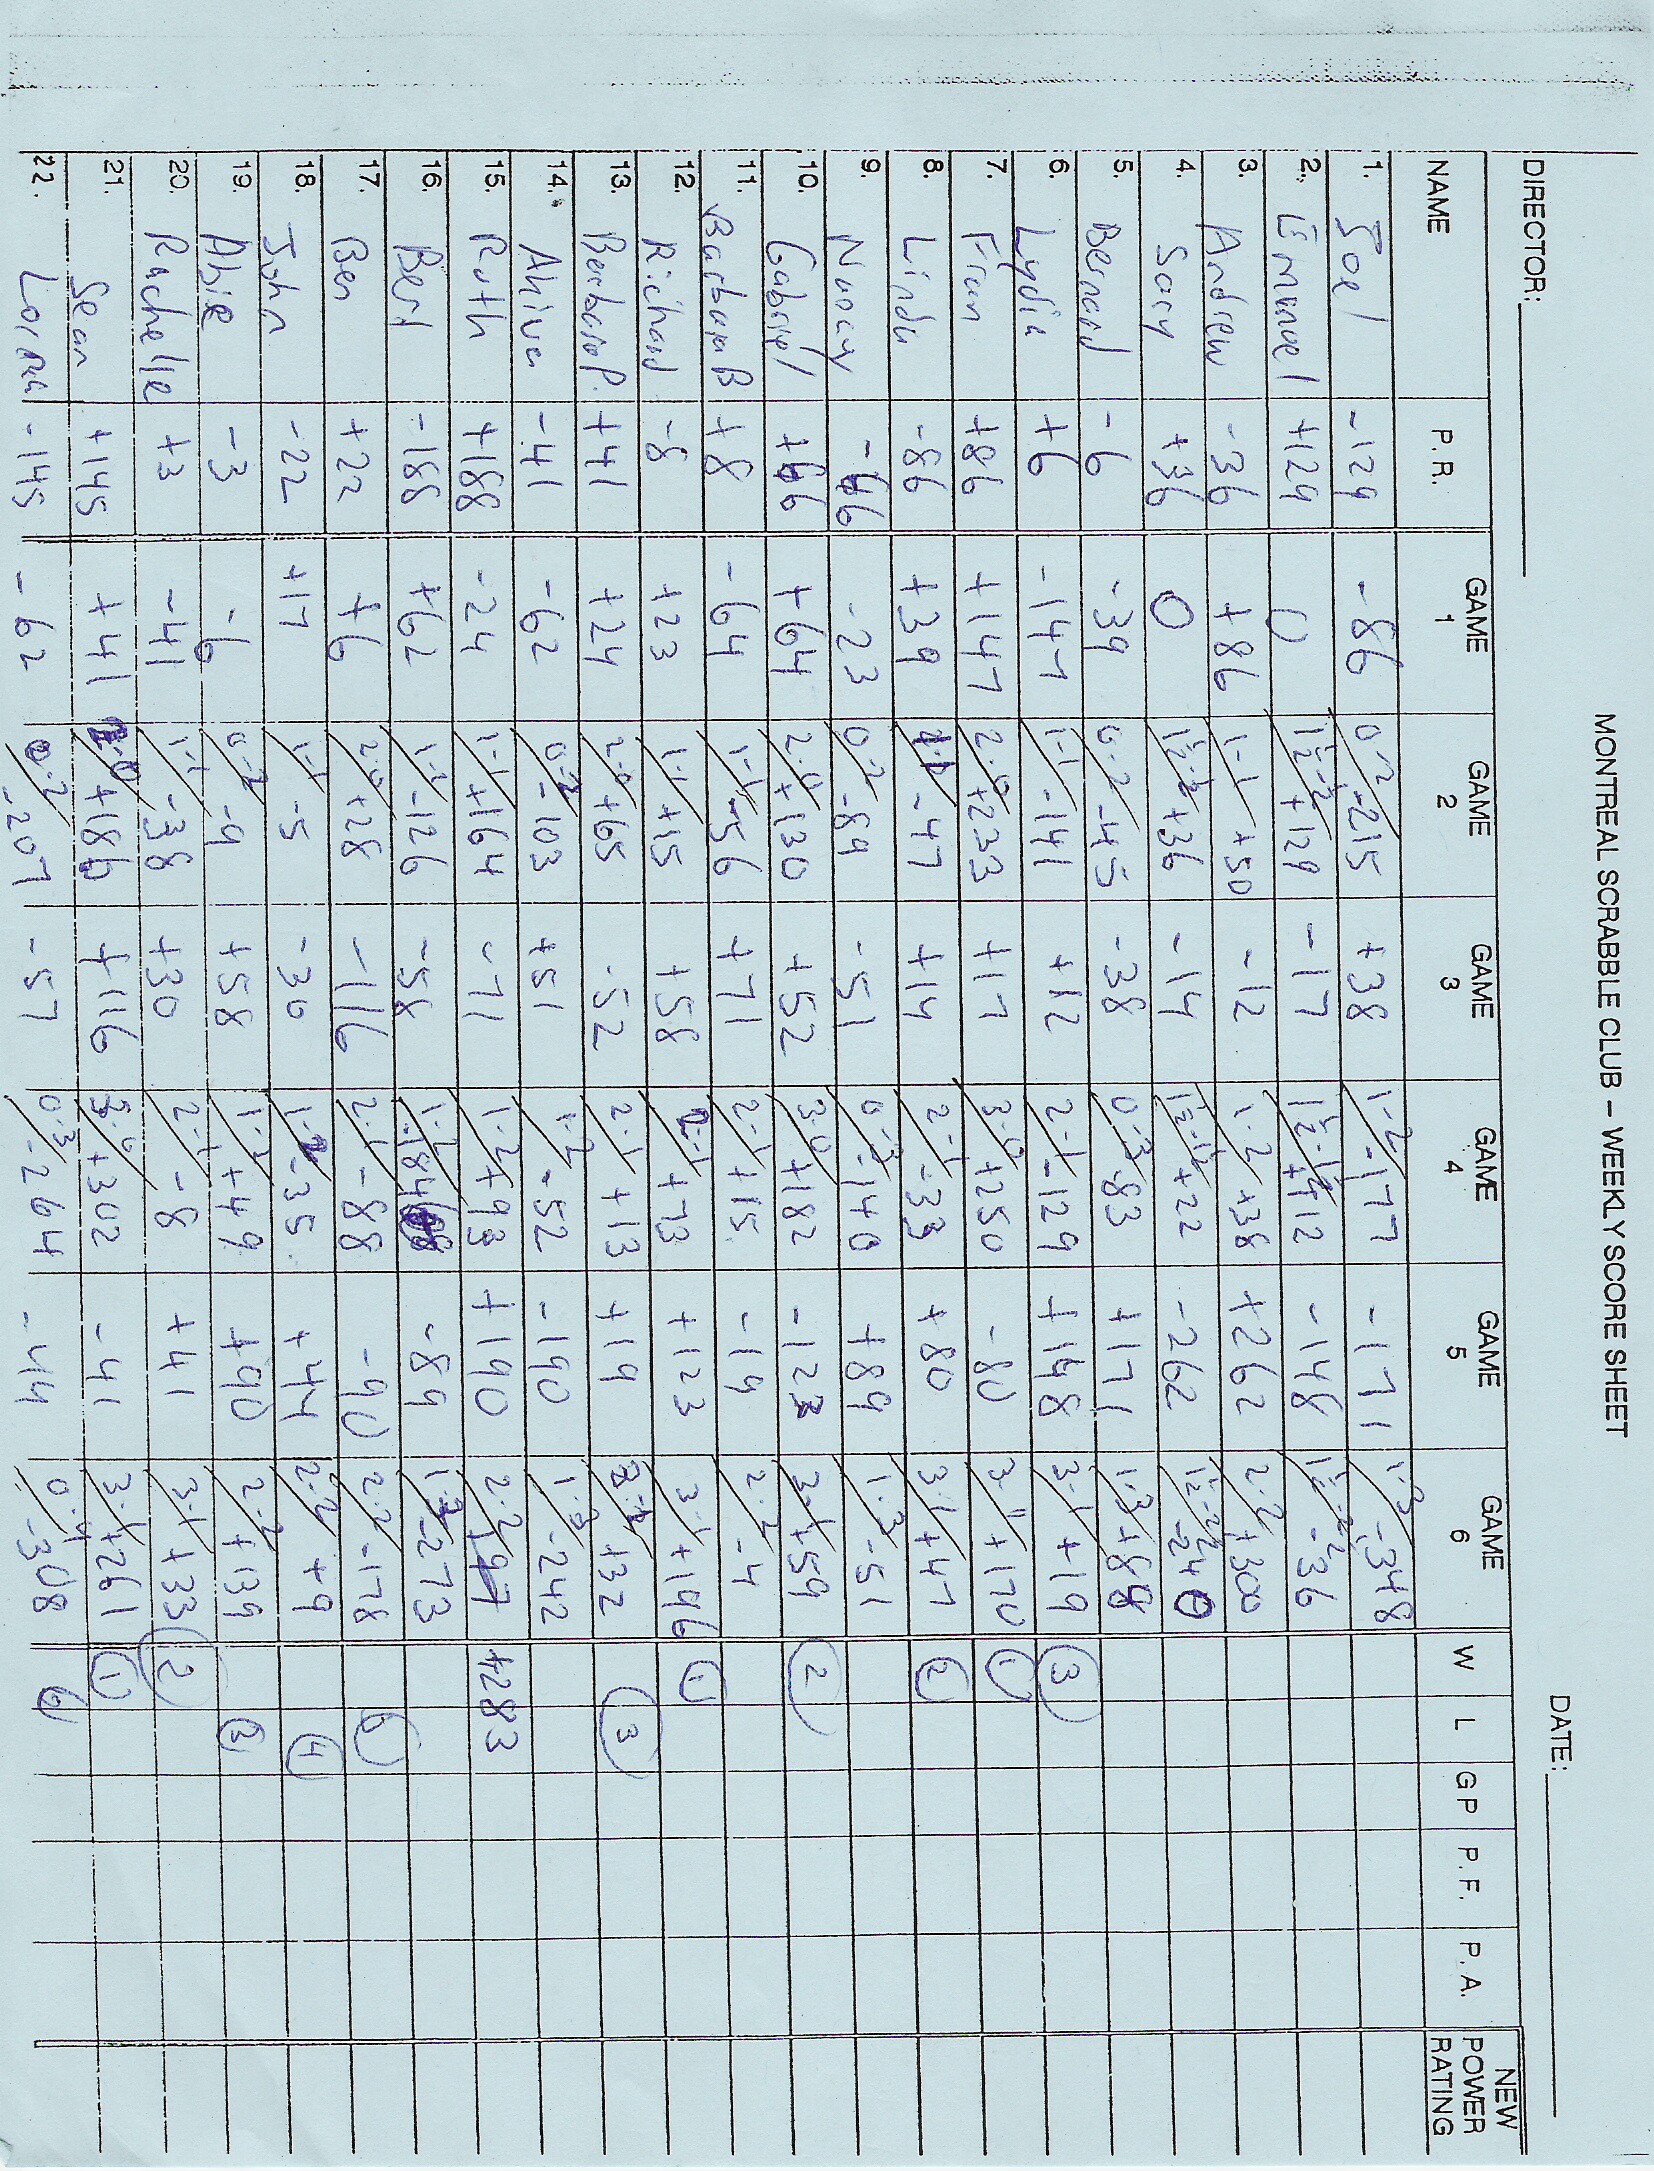 MONTREAL SCRABBLE CLUB – WEEKLY SCORE SHEET
DIRECTOR: DATE:
NAME P.R. GAME 1 GAME 2 GAME 3 GAME 4 GAME 5 GAME 6 W L GP P.F. P.A. NEW POWER RATING
1. Joel -129 -86 0-2 -215 +38 1-2 -177 -171 1-3 -348
2. Emanuel +129 0 1½-½ +129 -17 1½-1½ +112 -148 1½-2½ -36
3. Andrew -36 +86 1-1 +50 -12 1-2 +38 +262 2-2 +300
4. Sary +36 0 1½-½ +36 -14 1½-1½ +22 -262 1½-2½ -240
5. Bernard -6 -39 0-2 -45 -38 0-3 -83 +171 1-3 +88
6. Lydia +6 -147 1-1 -141 +12 2-1 -129 +148 3-1 +19 3
7. Fran +86 +147 2-0 +233 +17 3-0 +250 -80 3-1 +170 1
8. Linda -86 +39 1-1 -47 +14 2-1 -33 +80 3-1 +47 2
9. Nancy -66 -23 0-2 -89 -51 0-3 -140 +89 1-3 -51
10. Gabriel +66 +64 2-0 +130 +52 3-0 +182 -123 3-1 +59 2
11. Barbara B +8 -64 1-1 -56 +71 2-1 +15 -19 2-2 -4
12. Richard -8 +23 1-1 +15 +58 2-1 +73 +123 3-1 +196 1
13. Barbara P. +41 +24 2-0 +65 -52 2-1 +13 +19 3-1 +32 3
14. Akiva -41 -62 0-2 -103 +51 1-2 -52 -190 1-3 -242
15. Ruth +188 -24 1-1 +164 -71 1-2 +93 +190 2-2 +283
16. Bert -188 +62 1-1 -126 -58 1-2 -184 -89 1-3 -273
17. Ben +22 +6 2-0 +28 -116 2-1 -88 -90 2-2 -178
18. John -22 +17 1-1 -5 -30 1-2 -35 +44 2-2 +9 4
19. Abie -3 -6 0-2 -9 +58 1-2 +49 +90 2-2 +139 3
20. Rachelle +3 -41 1-1 -38 +30 2-1 -8 +41 3-1 +33 2
21. Sean +145 +41 2-0 +186 +116 3-0 +302 -41 3-1 +261 1
22. Lorna -145 -62 0-2 -207 -57 0-3 -264 -44 0-4 -308 6